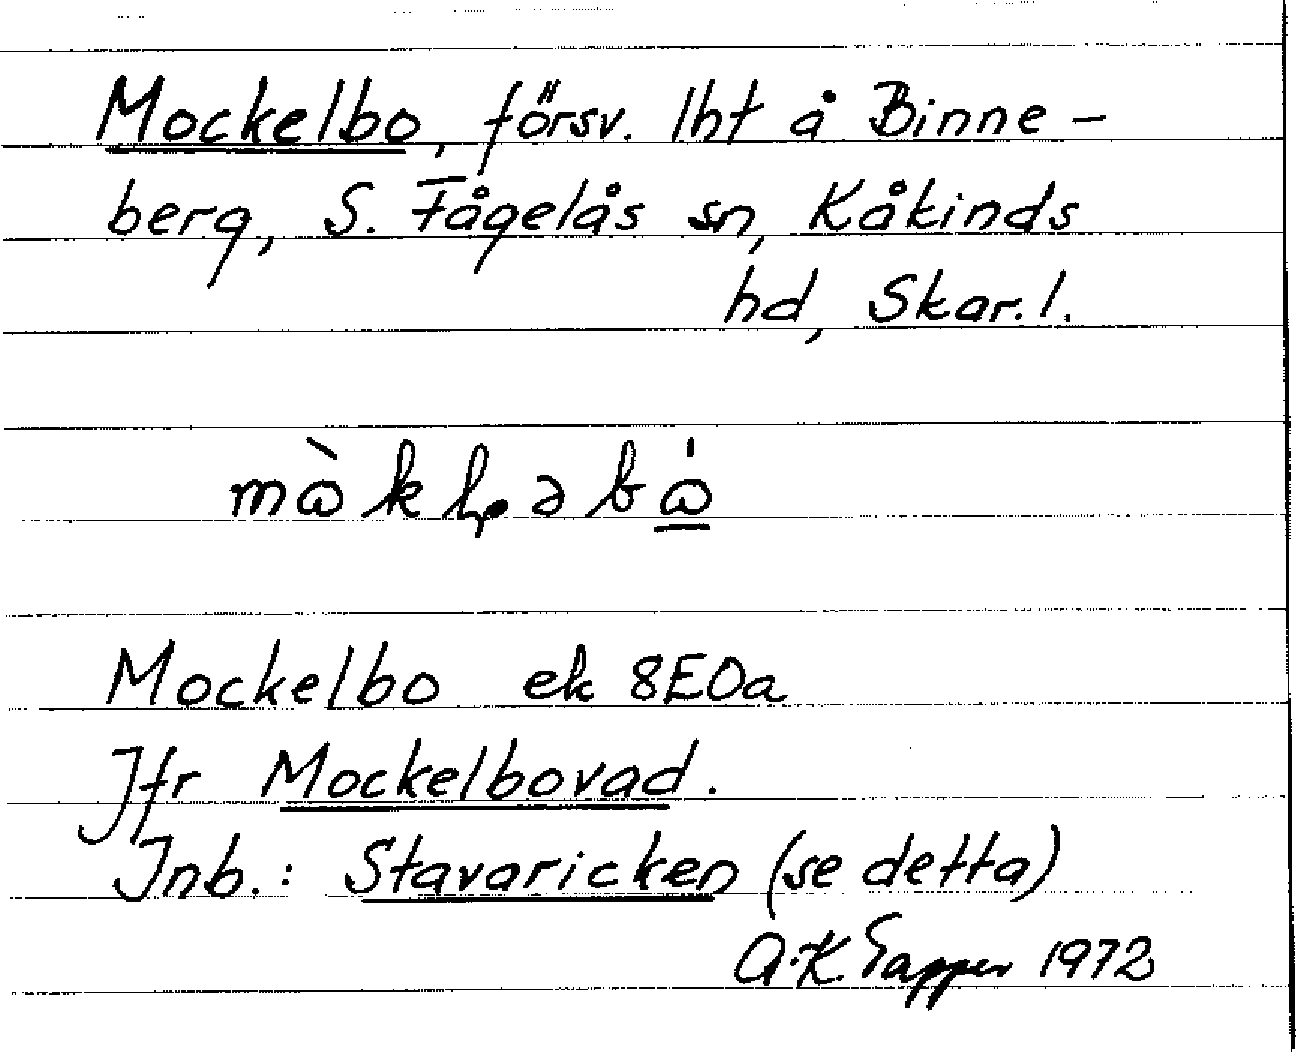 Mockelbo, försv. lht å Binne-
berg, S. Fågelås sn, Kåkinds
hd, Skar. l.
Mockelbo ek 8E0a
Jfr Mockelbovad.
Inb.: Stavaricken (se detta)
A.K. Tapper 1972